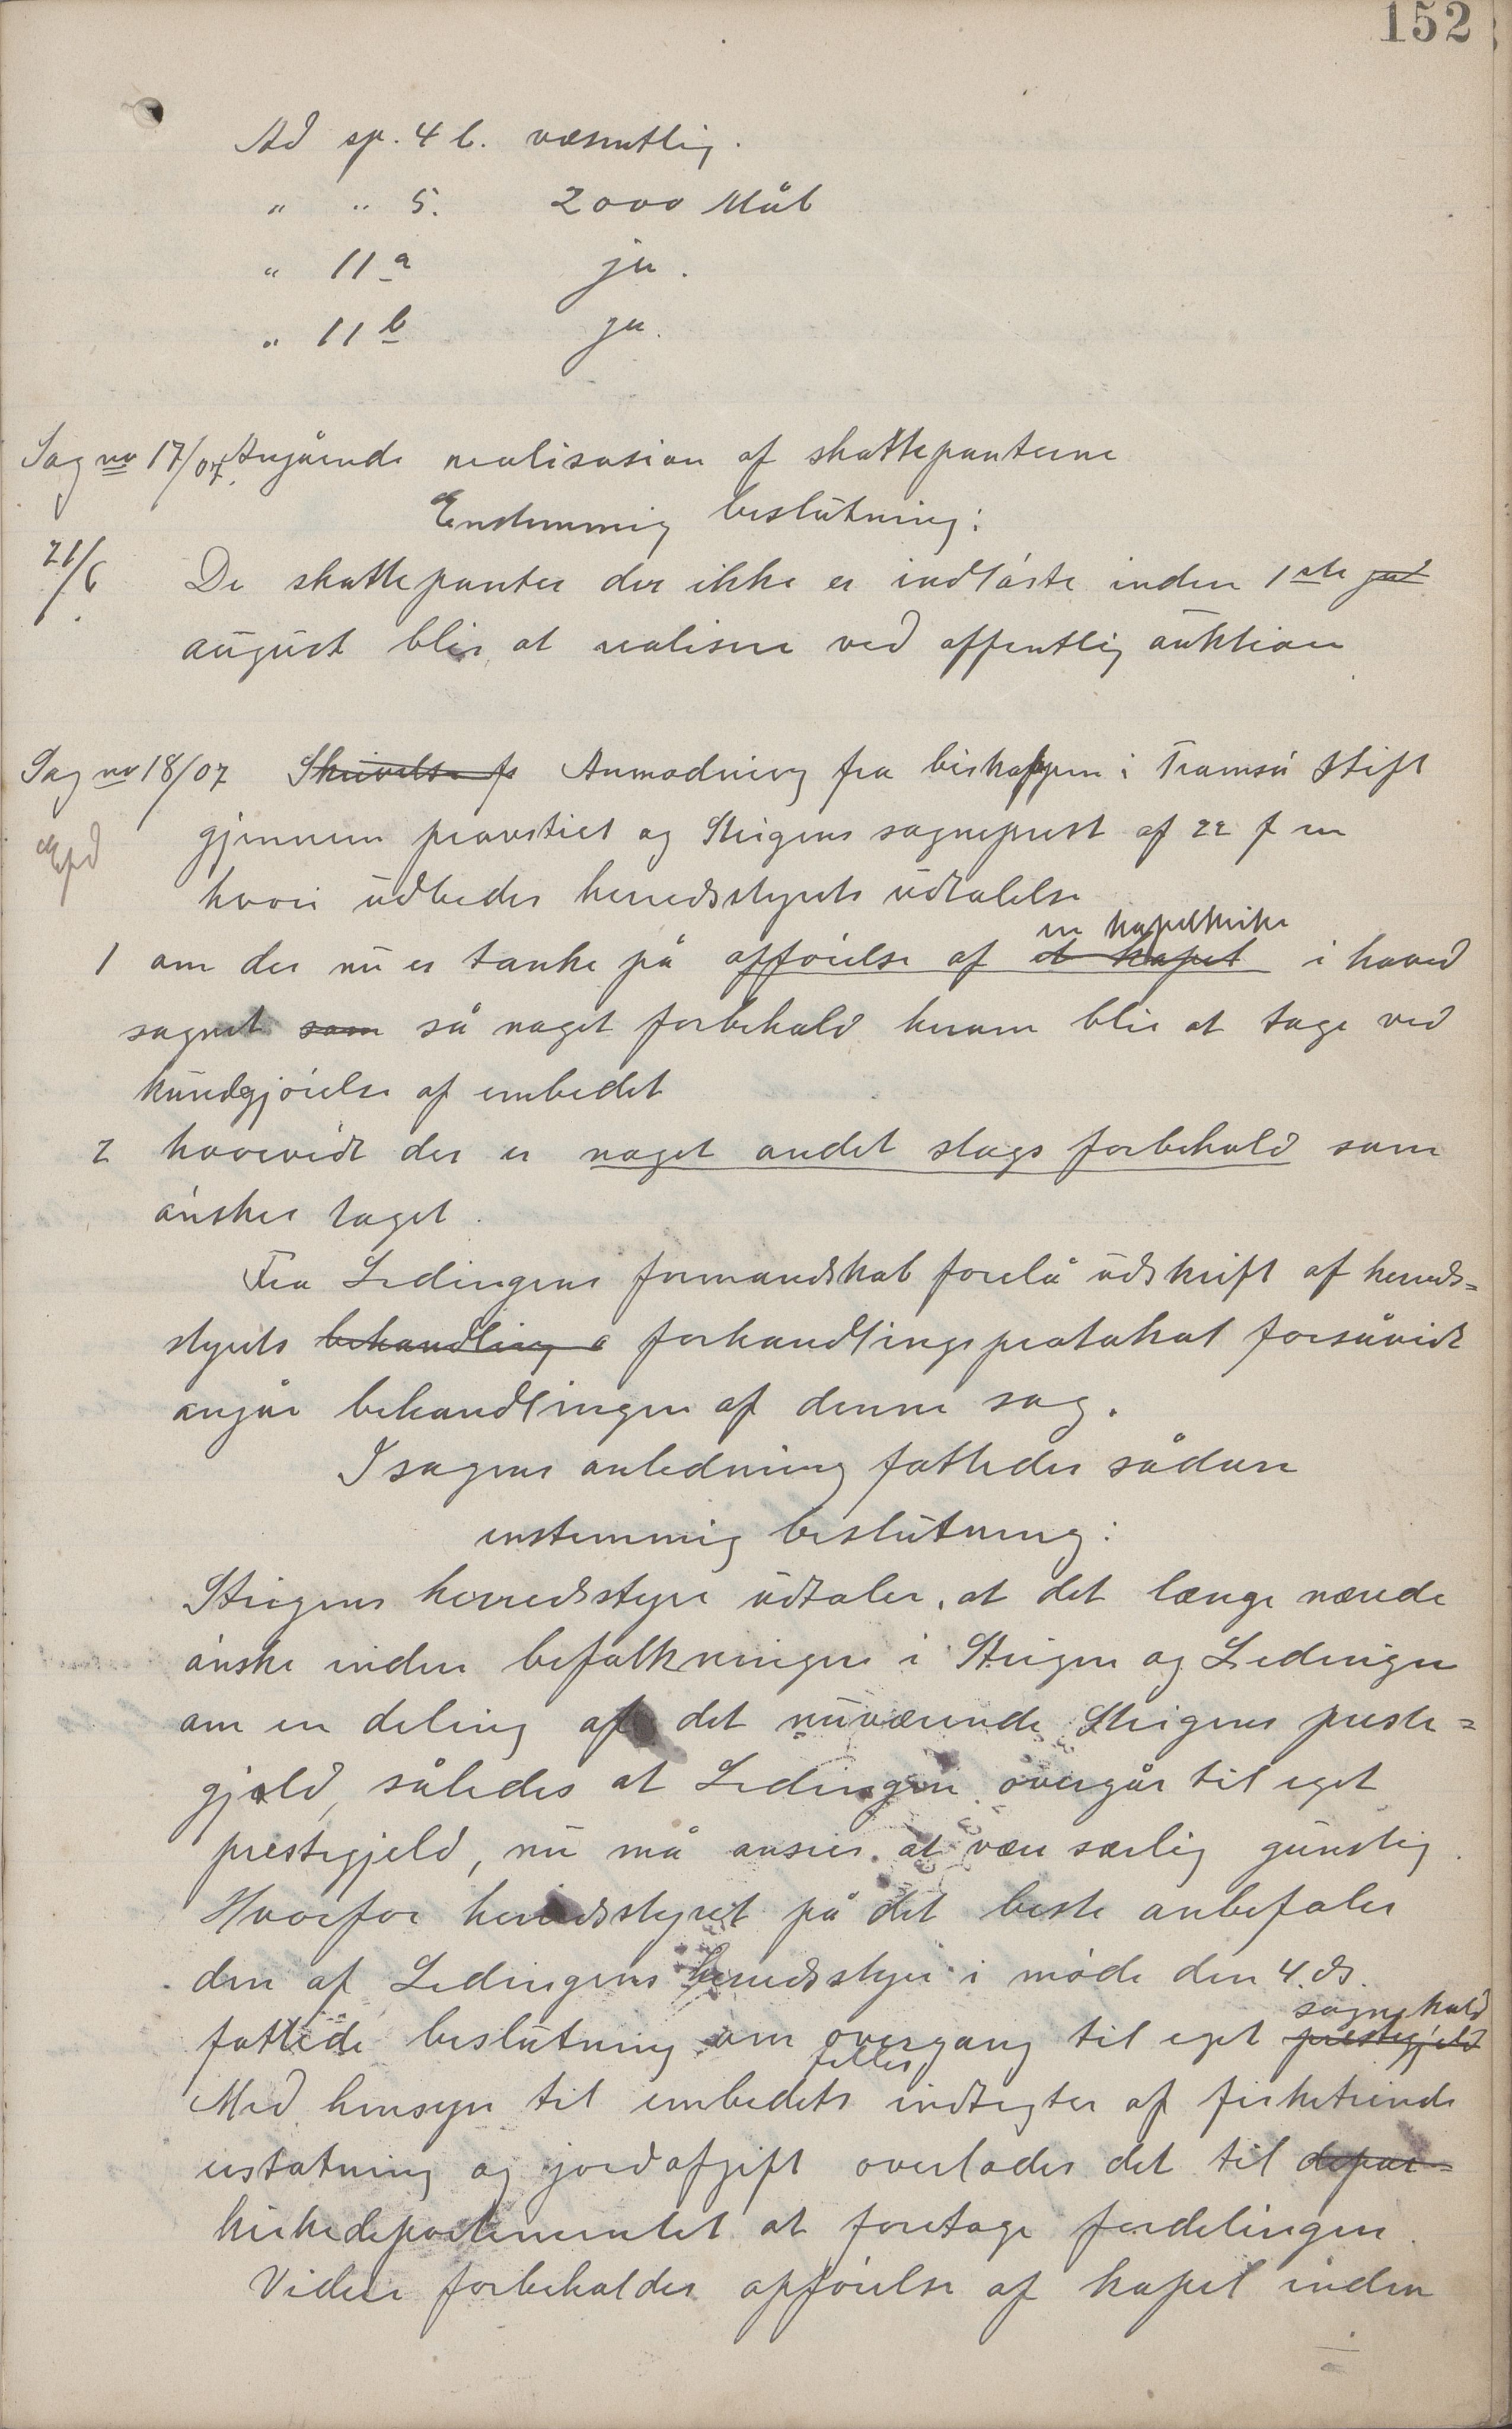 152
Ad sp. 4 b. væsentlig.
" " 5. 2000 Mål
" 11 a ja.
" 11 b ja.
Sag no 17/07. Angående realisasion af skattepanterne
Enstemmig beslutning:
21/6 De skattepanter der ikke er indløste inden 1ste jul
august blir at realisere ved offentlig auktion
Sag no 18/07 Skrivelse fr Anmodning fra biskoppen i Tromsø stift
gjennem provstiet og Steigens sogneprest af 22 f m
Epd
hvori udbedes herredsstyrets udtalelse
en kapelkirke
1 om der nu er tanke på opførelse af et kapel i hoved
sognet som så noget forbehold herom blir at tage ved
kundgjørelse af embedet
2 hvorvidt der er noget andet slags forbehold som
ønskes taget.
Fra Ledingens formandskab forelå udskrift af herreds=
styrets behandling a forhandlingsprotokol forsåvidt
angår behandlingen af denne sag.
I sagens anledning fattedes sådan
enstemmig beslutning:
Steigens herredsstyre udtaler, at det længe nærede
ønske inden befolkningen i Steigen og Ledingen
om en deling af det nuværende Steigens preste=
gjeld, således at Ledingen overgår til eget
prestegjeld, nu må ansees at være særlig gunstig.
Hvorfor herredsstyret på det beste anbefaler
den af Ledingens herredsstyre i møde den 4. ds.
sognekald
fattede beslutning om overgang til eget prestegjeld
felles
Med hensyn til embedets indtegter af fisketiende
erstatning og jordafgift overlades det til depar=
kirkedepartementet at foretage fordelingen.
Videre forbeholdes opførelse af kapel inden